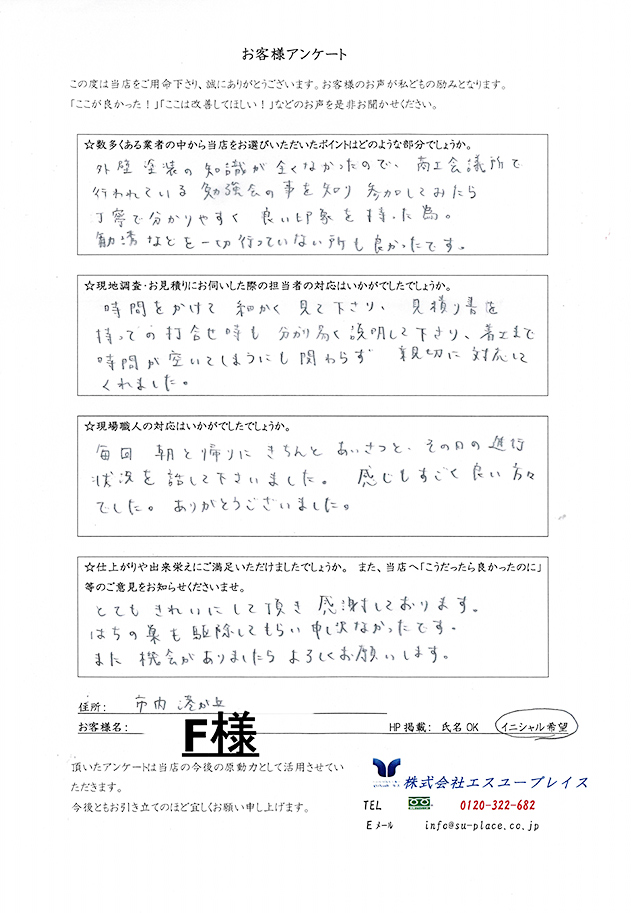 お客様アンケート
この度は当店をご用命下さり、誠にありがとうございます。お客様のお声が私どもの励みとなります。
「ここが良かった！」「ここは改善してほしい！」などのお声を是非お聞かせください。
☆数多くある業者の中から当店をお選びいただいたポイントはどのような部分でしょうか。
外壁塗装の知識が全くなかったので、商工会議所で
行われている勉強会の事を知り参加してみたら
丁寧で分かりやすく良い印象を持った為。
勧誘などを一切行っていない所も良かったです。
☆現地調査・お見積りにお伺いした際の担当者の対応はいかがでしたでしょうか。
時間をかけて細かく見て下さり、見積り書を
持っての打合せ時も分かり易く説明して下さり、着工まで
時間が空いてしまうにも関わらず親切に対応して
くれました。
☆現場職人の対応はいかがでしたでしょうか。
毎回朝と帰りにきちんとあいさつと、その日の進行
状況を話して下さいました。感じもすごく良い方々
でした。ありがとうございました。
☆仕上がりや出来栄えにご満足いただけましたでしょうか。また、当店へ「こうだったら良かったのに」
等のご意見をお知らせくださいませ。
とてもきれいにして頂き感謝しております。
はちの巣も駆除してもらい申し訳なかったです。
また機会がありましたらよろしくお願いします。
住所： 市内 港が丘
お客様名： F様 HP掲載： 氏名OK イニシャル希望
頂いたアンケートは当店の今後の原動力として活用させてい
ただきます。
今後ともお引き立てのほど宜しくお願い申し上げます。
株式会社エスユープレイス
TEL 0120-322-682
Eメール info@su-place.co.jp